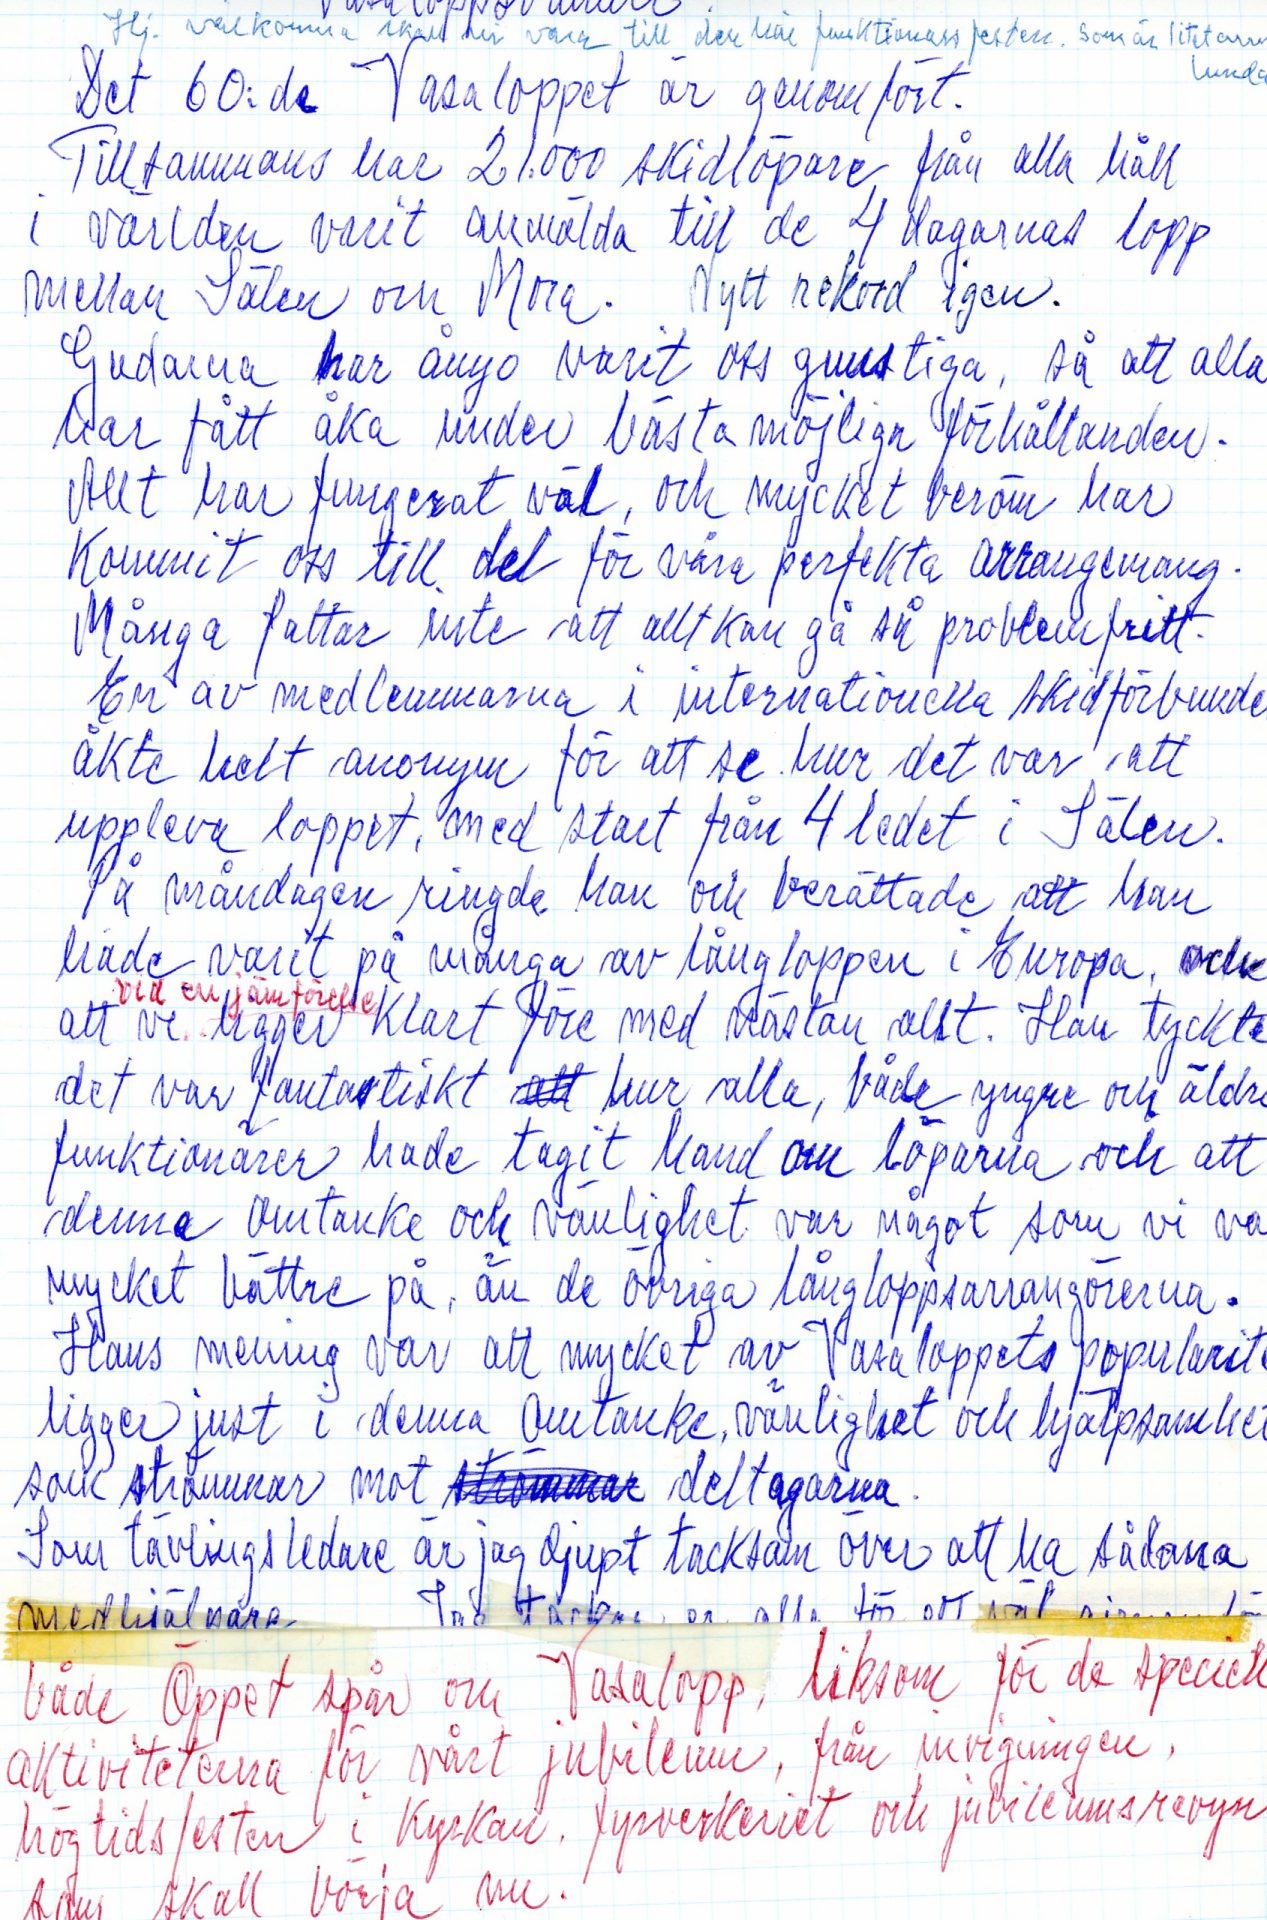 Vasaloppsvänner!
Hej. välkomna skall ni vara till den här funktionärsfesten. Som är litet
Det 60:de Vasaloppet är genomfört.
Tillsammans har 21.000 skidlöpare från alla håll
i världen varit anmälda till de 4 dagarnas lopp
mellan Sälen och Mora. Nytt rekord igen.
Gudarna har ånyo varit oss gunstiga, så att alla
har fått åka under bästa möjliga förhållanden.
Allt har fungerat väl, och mycket beröm har
kommit oss till del för våra perfekta arrangemang.
Många fattar inte att allt kan gå så problemfritt.
En av medlemmarna i internationella skidförbunde
åkte helt anonym för att se hur det var att
uppleva loppet, med start från 4 ledet i Sälen.
På måndagen ringde han och berättade att han
hade varit på många av långloppen i Europa, och
vid en jämförelse
att vi ligger klart före med nästan allt. Han tyckte
det var fantastiskt att hur alla, både yngre och äldre
funktionärer hade tagit hand om löparna och att
denna omtanke och vänlighet var något som vi va
mycket bättre på, än de övriga långloppsarrangörerna.
Hans mening var att mycket av Vasaloppets popularite
ligger just i denna omtanke, vänlighet och hjälpsamhet
som strömmar mot strömmar deltagarna.
Som tävlingsledare är jag djupt tacksam över att ha sådana
medhjälpare. Jag tackar er alla för ett väl
både Öppet spår och Vasalopp, liksom för de speciel
aktiviteterna för vårt jubileum, från invigningen,
högtidsfesten i kyrkan, fyrverkeriet och jubileumsrevyn
som skall börja nu.